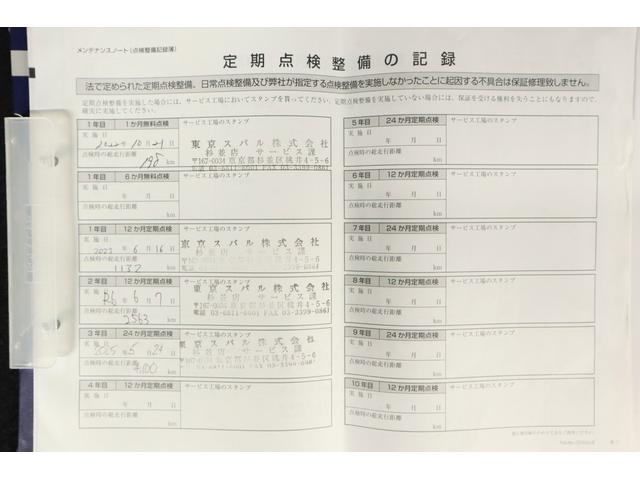 メンテナンスノート(点検整備記録簿)
定期点検整備の記録
法で定められた定期点検整備、日常点検整備及び弊社が指定する点検整備を実施しなかったことに起因する不具合は保証修理致しません。
定期点検整備を実施した場合には、サービス工場においてスタンプを貰ってください。定期点検整備を実施していない場合には、保証を受ける権利を失うこともなりますので、
確実に実施してください。
1年目 1か月無料点検 サービス工場のスタンプ
実施日
2022年10月21日
点検時の総走行距離
198 km
東京スバル株式会社
杉並店 サービス課
〒167-0034 東京都杉並区桃井4-5-6
電話 03-6811-6601 FAX 03-3399-0861
1年目 6か月無料点検 サービス工場のスタンプ
実施日
年 月 日
点検時の総走行距離
km
1年目 12か月定期点検 サービス工場のスタンプ
実施日
2023年6月16日
点検時の総走行距離
1132 km
東京スバル株式会社
杉並店 サービス課
2年目 12か月定期点検 サービス工場のスタンプ
実施日
R6年6月7日
点検時の総走行距離
2563 km
東京スバル株式会社
杉並店 サービス課
〒167-0034 東京都杉並区桃井4-5-6
電話 03-6811-6601 FAX 03-3399-0861
3年目 24か月定期点検 サービス工場のスタンプ
実施日
2025年5月24日
点検時の総走行距離
km
東京スバル株式会社
杉並店 サービス課
〒167-0034 東京都杉並区桃井4-5-6
4年目 12か月定期点検 サービス工場のスタンプ
実施日
年 月 日
点検時の総走行距離
km
5年目 24か月定期点検 サービス工場のスタンプ
実施日
年 月 日
点検時の総走行距離
km
6年目 12か月定期点検 サービス工場のスタンプ
実施日
年 月 日
点検時の総走行距離
km
7年目 24か月定期点検 サービス工場のスタンプ
実施日
年 月 日
点検時の総走行距離
km
8年目 12か月定期点検 サービス工場のスタンプ
実施日
年 月 日
点検時の総走行距離
km
9年目 24か月定期点検 サービス工場のスタンプ
実施日
年 月 日
点検時の総走行距離
km
10年目 12か月定期点検 サービス工場のスタンプ
実施日
年 月 日
点検時の総走行距離
km